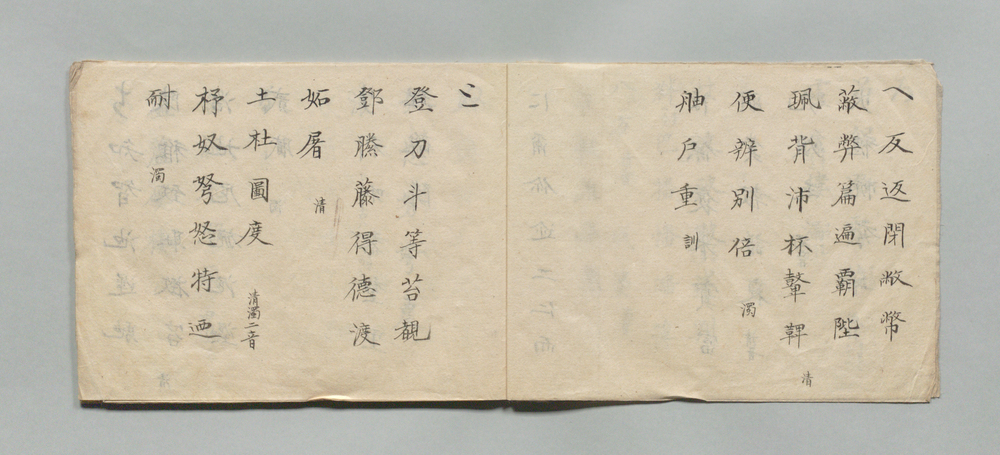 へ 反返閉敝幣
蔽弊篇遍覇陛
珮背沛杯鼙鞞 清
便辨別倍 濁
舳戸重 訓
と
登刀斗等苔覩
鄧騰藤得德渡
妬屠 清
土杜圖度 清濁二音
杼奴弩怒特迺
耐 濁